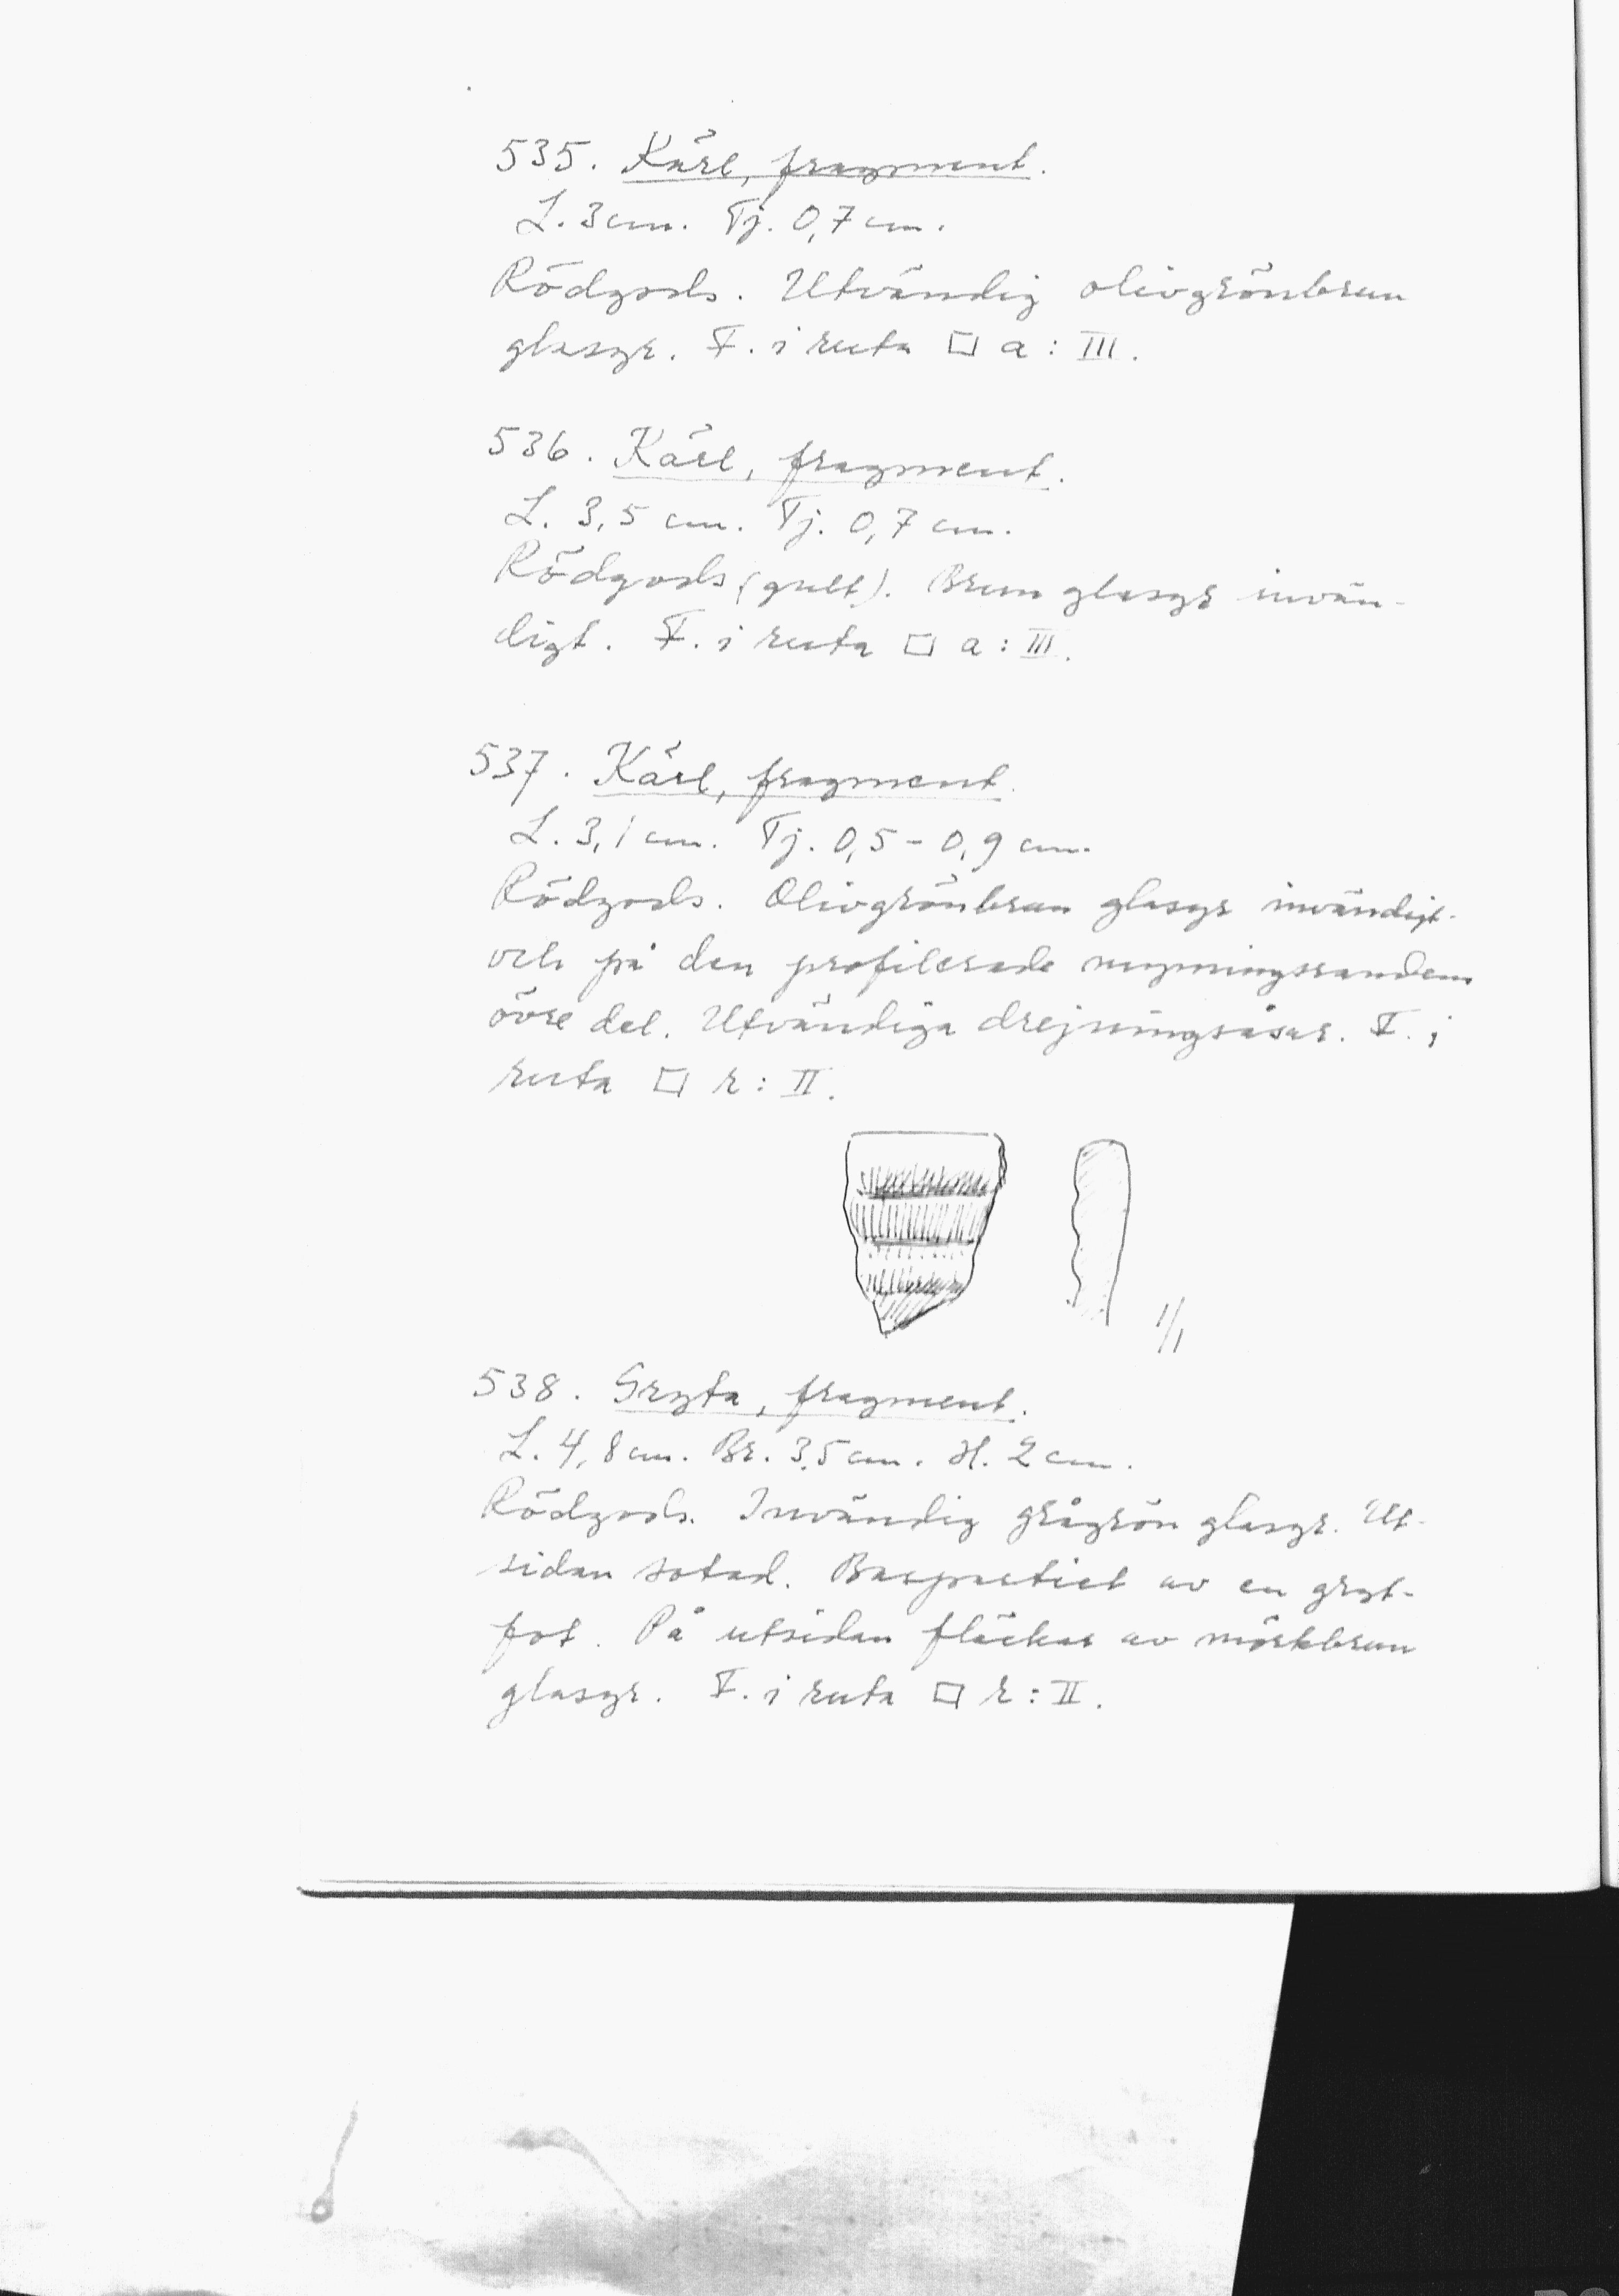 535. Kärl, fragment.
L. 3 cm. Tj. 0,7 cm.
Rödgods. Utvändig olivgrönbrun
glasyr. F. i ruta □ a : III.
536. Kärl, fragment.
L. 3,5 cm. Tj. 0,7 cm.
Rödgods (gult). Brun glasyr invän-
digt. F. i ruta □ a : III.
537. Kärl, fragment.
L. 3,1 cm. Tj. 0,5 - 0,9 cm.
Rödgods. Olivgrönbrun glasyr invändigt
och på den profilerade mynningsrandens
övre del. Utvändiga drejningsåsar. F. i
ruta □ r : II.
1/1
538. Gryta, fragment.
L. 4,8 cm. Br. 3,5 cm. H. 2 cm.
Rödgods. Invändig grågrön glasyr. Ut-
sidan sotad. Baspartiet av en gryt-
fot. På utsidan fläckar av mörkbrun
glasyr. F. i ruta □ r : II.